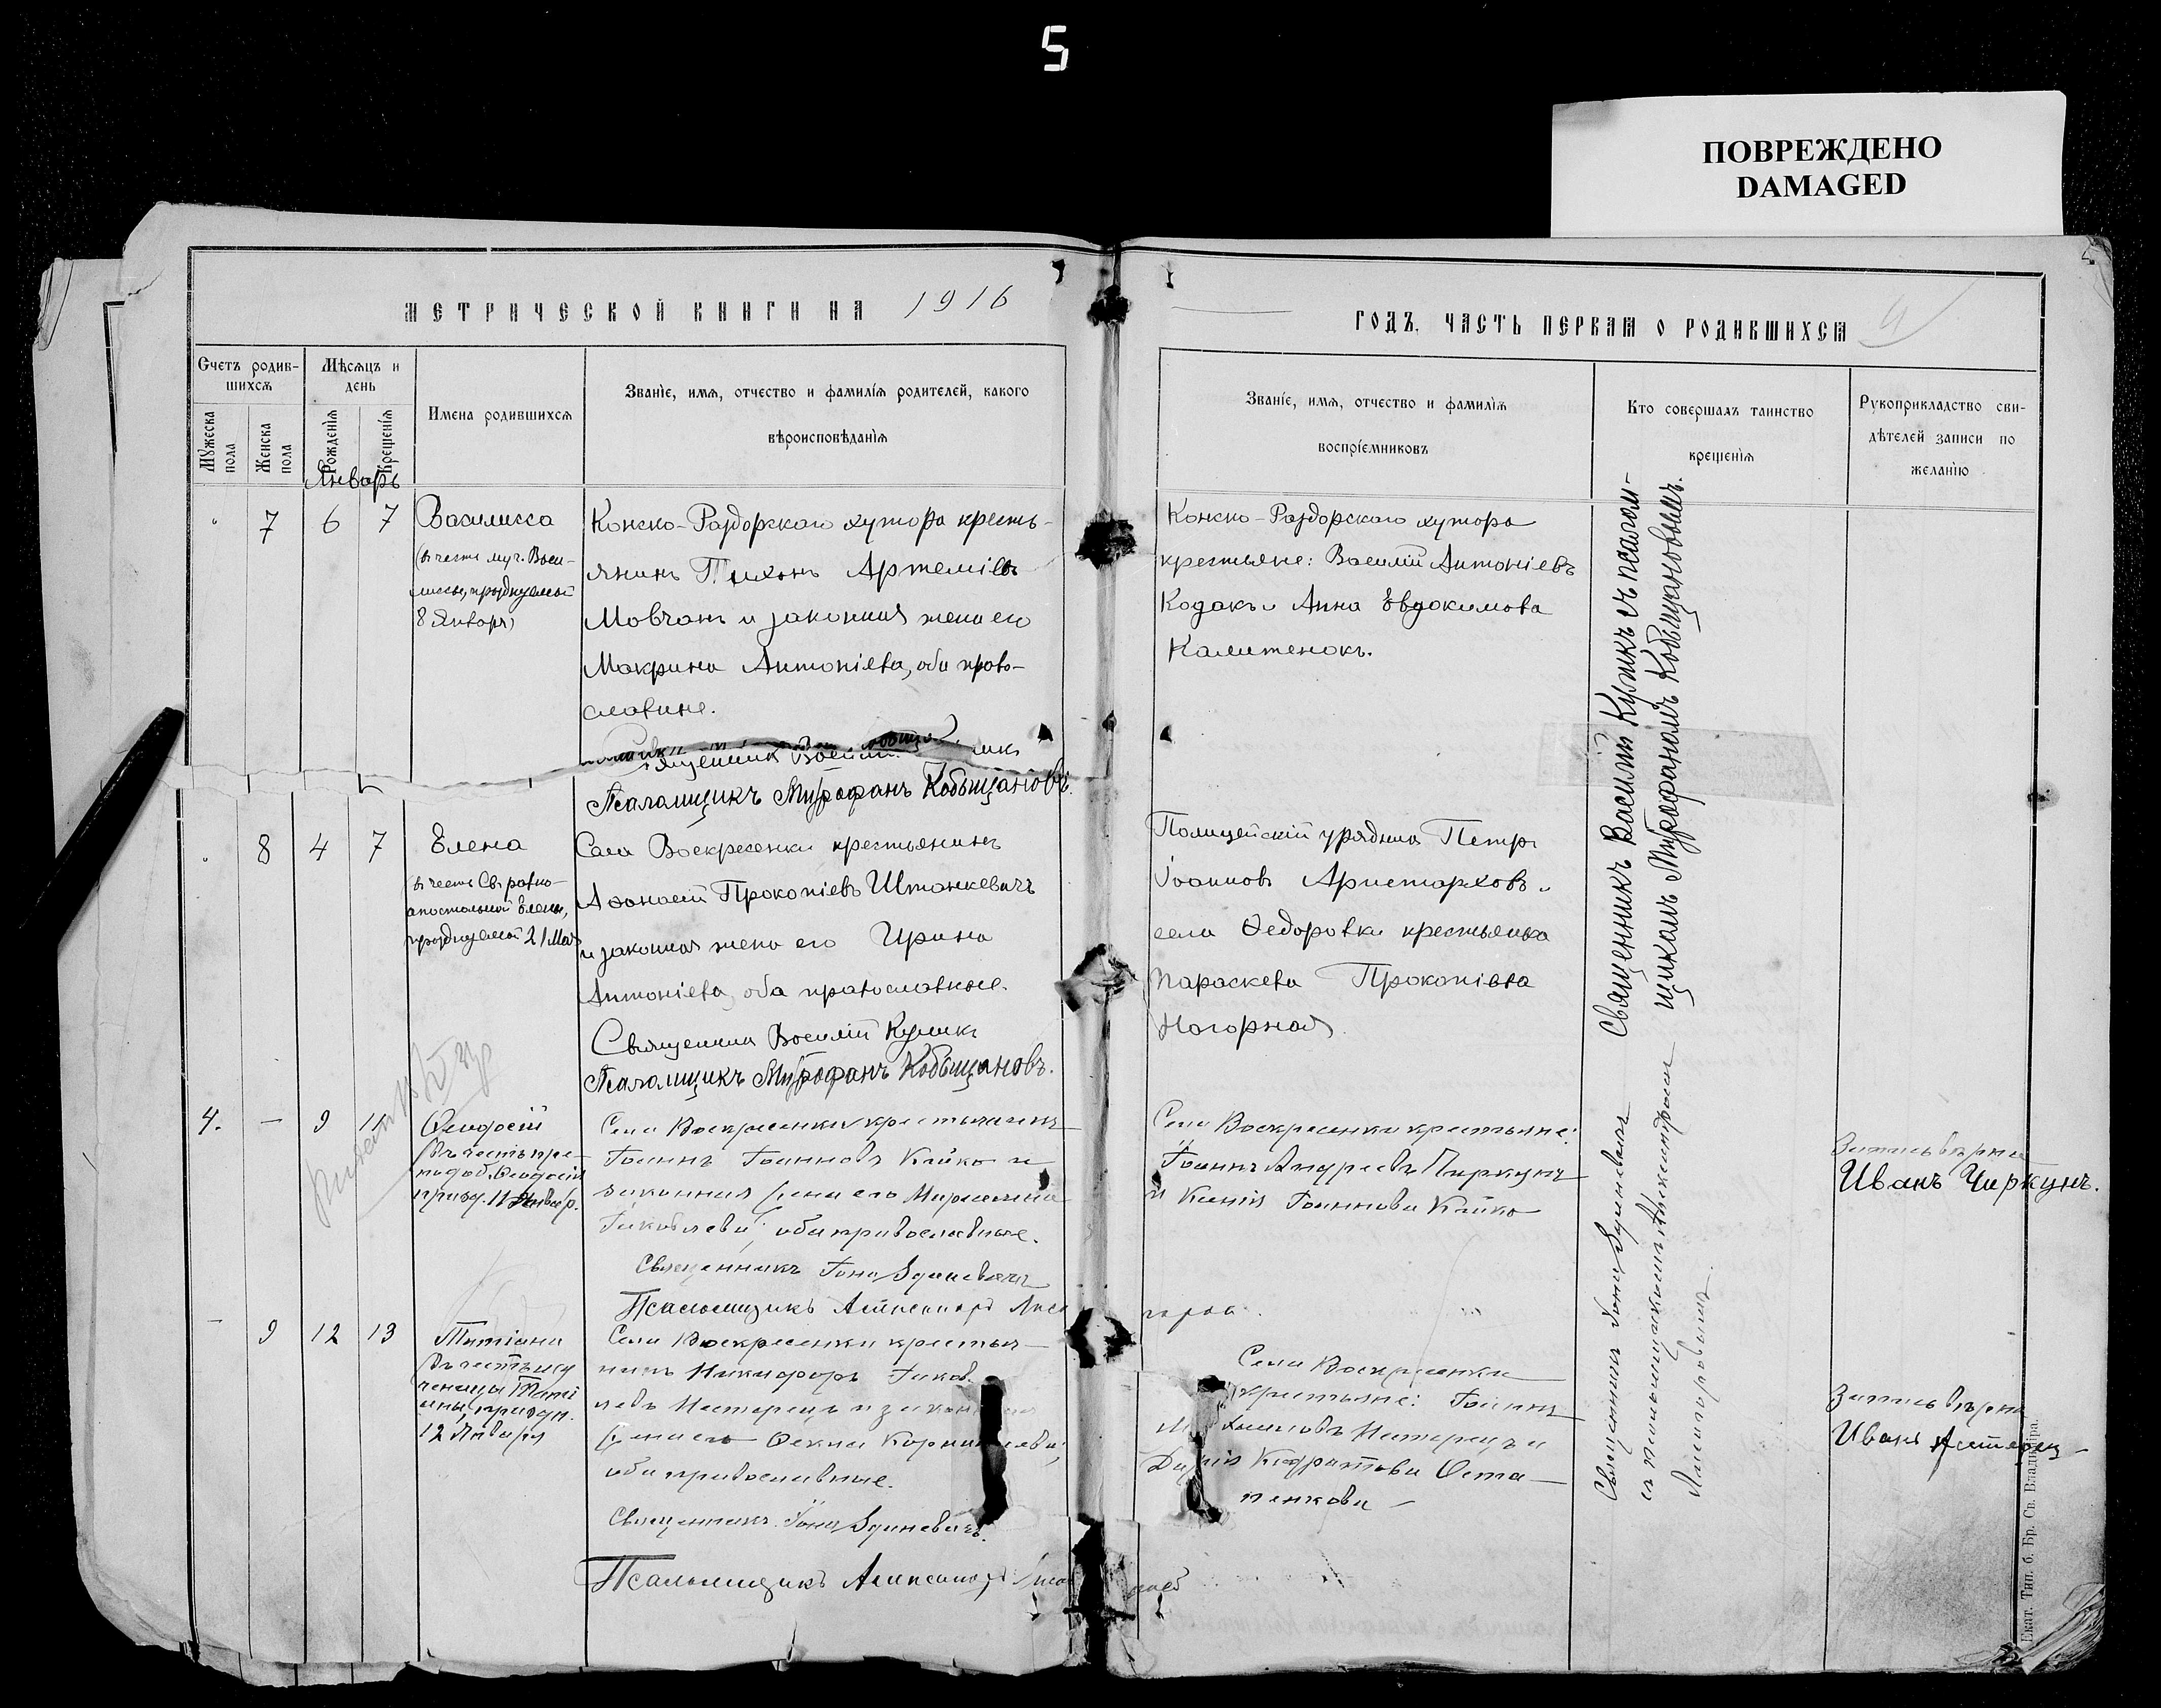 5
ПОВРЕЖДЕНО
DAMAGED
МЕТРИЧЕСКОЙ КНИГИ НА 1916
ГОДЪ, ЧАСТЬ ПЕРВАЯ О РОДИВШИХСЯ 4
Счетъ родив-
шихся
Мѣсяцъ и
день
Имена родившихся
Званіе, имя, отчество и фамилія родителей, какого
вѣроисповѣданія
Мужеска
пола
Женска
пола
Рожденія
Крещенія
Званіе, имя, отчество и фамилія
воспріемниковъ
Кто совершалъ таинство
крещенія
Рукоприкладство сви-
дѣтелей записи по
желанію
Январь
7 6 7
Василисса
(въ честь муч. Васи-
лиссы, празднуемой
8 Января)
Конско-Раздорскаго хутора кресть-
янинъ Тихонъ Артеміевъ
Мовчанъ и законная жена его
Макрина Антоніева, оба право-
славные.
Священникъ Василій
Псаломщикъ Митрофанъ Кобыщановъ.
Конско-Раздорскаго хутора
крестьяне: Василій Антоніевъ
Кодакъ и Анна Евдокимова
Калитенокъ.
Священникъ Василій Куликъ съ псалом-
щикомъ Митрофаномъ Кобыщановымъ.
8 4 7
Елена
(въ честь Св. равно-
апостольной Елены,
празднуемой 21 Мая
Села Воскресенки крестьянинъ
Аѳанасій Прокопіевъ Штанкевичъ
и законная жена его Ирина
Антоніева, оба православные.
Священникъ Василій Куликъ
Псаломщикъ Митрофанъ Кобыщановъ.
Полицейскій урядникъ Петръ
Іоанновъ Аристарховъ и
села Ѳедоровки крестьянка
Параскева Прокопіева
Нагорная.
4. — 9 11
Ѳеодосій
Въ честь пре-
подоб. Ѳеодосія
празд. 11 Январ.
Села Воскресенки крестьянинъ
Іоаннъ Іоанновъ Кайко и
законная жена его
Іаковлева, оба православные.
Священникъ Іона
Псаломщикъ Александръ
Села Воскресенки крестьяне:
Іоаннъ Андреевъ Чиркунъ
и Ксенія Іоаннова Кайко
Священникъ Іона
съ псаломщикомъ Александромъ
Запись вѣрна
Иванъ Чиркунъ.
— 9 12 13
Татіана
Въ честь му
ченицы Тати
аны, праздн.
12 Января
Села Воскресенки крестья-
нинъ Никифоръ Іаков
левъ Нестерецъ и
жена его Ѳекла
оба православные.
Священникъ Іона
Псаломщикъ Александръ
Села Воскресенки
крестьяне: Іоаннъ
Нестерецъ и
Дарія Кодратова Оста-
пенкова —
Запись вѣрна
Иванъ Нестерец
Екат. Тип. б. Бр. Св. Владиміра.